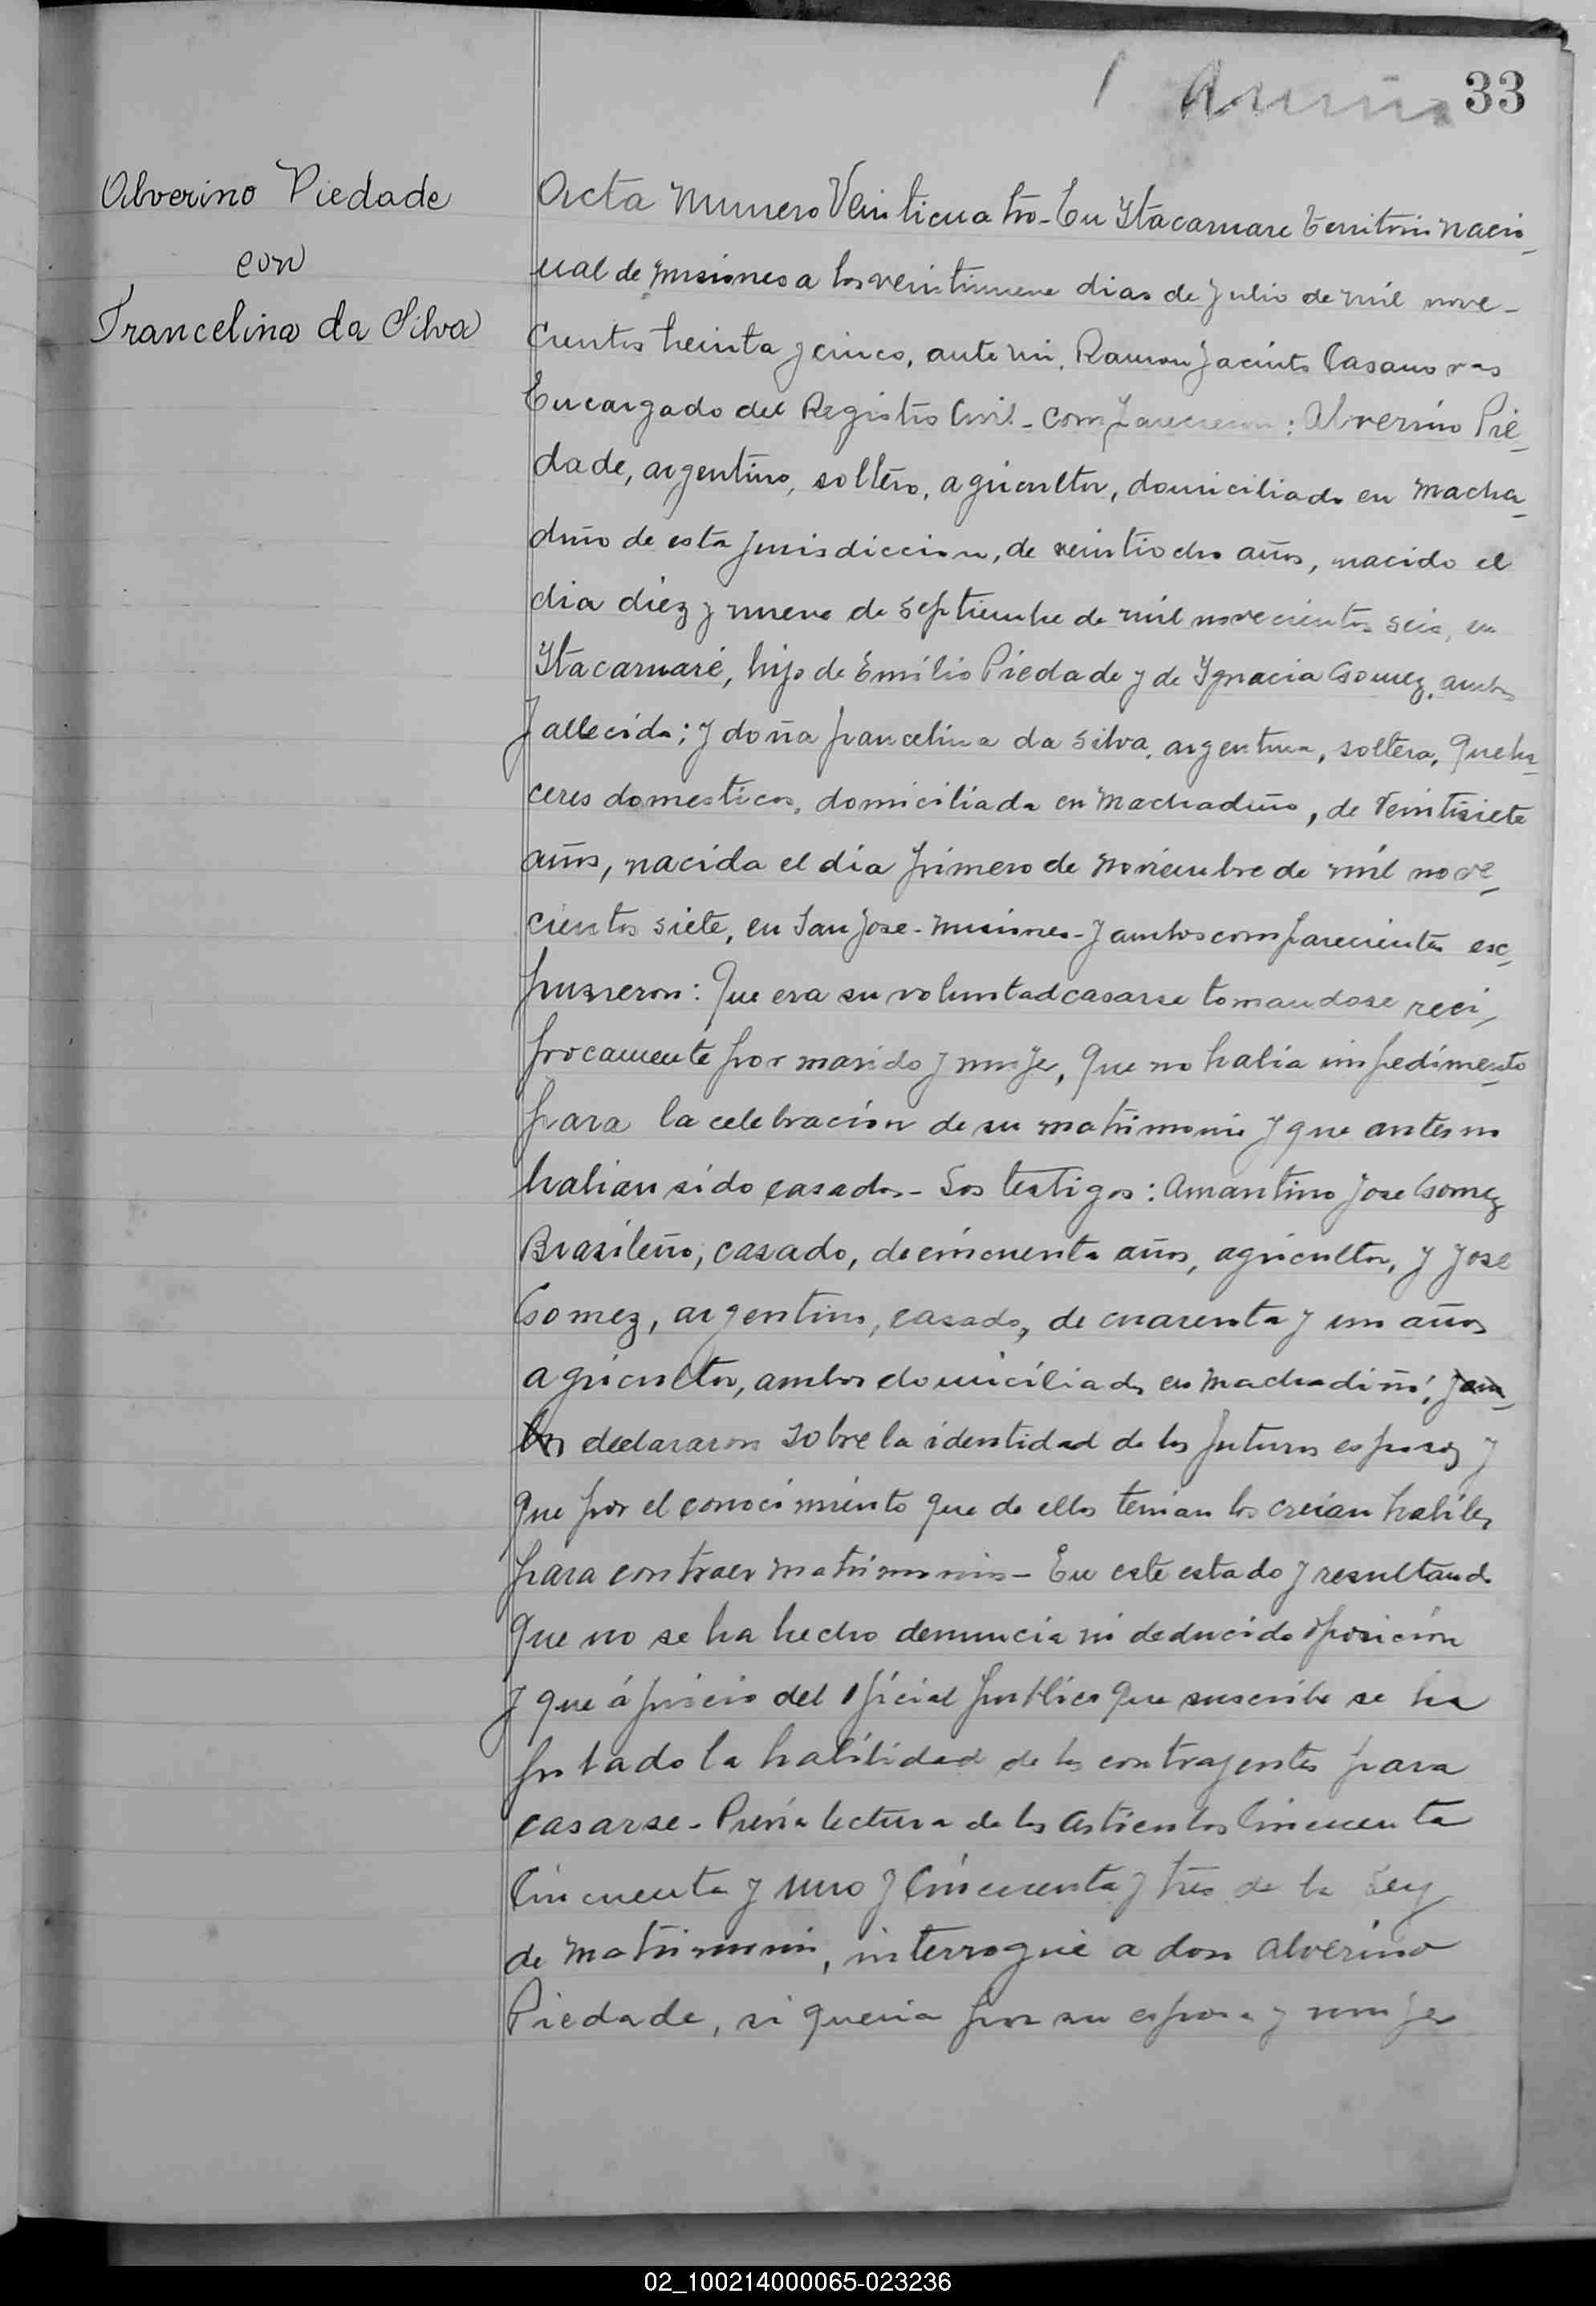 33
Alverino Piedade
con
Francelina da Silva
Acta Numero Veinticuatro - En Ytacaruare territorio nacio-
nal de misiones a los veintinueve dias de Julio de mil nove-
cientos treinta y cinco, ante mi, Ramon Jacinto Casanovas
Encargado del Registro Civil - comparecieron: Alverino Pie-
dade, argentino, soltero, agricultor, domiciliado en Macha-
diño de esta jurisdiccion, de veintiocho años, nacido el
dia diez y nueve de Septiembre de mil novecientos seis, en
Ytacaruaré, hijo de Emilio Piedade y de Ygnacia Gomez, ambos
fallecido; y doña francelina da Silva, argentina, soltera, queha-
ceres domesticos, domiciliada en Machadiño, de Veintisiete
años, nacida el dia primero de Noviembre de mil nove-
cientos siete, en San Jose - Misiones - y ambos comparecientes esc-
pusieron: Que era su voluntad casarse tomandose reci-
procamente por marido y mujer, Que no habia impedimento
para la celebración de su matrimonio y que antes no
habian sido casados - Los testigos: Amantino Jose Gomez
Brasileño, casado, de cincuenta años, agricultor, y Jose
Gomez, argentino, casado, de cuarenta y un años
agricultor, ambos domiciliados en Machadiño, y am-
bos declararon sobre la identidad de los futuros esposos y
Que por el conocimiento que de ellos tenian los creian habiles
para contraer matrimonio - En este estado y resultando
Que no se ha hecho denuncia ni deducido oposición
y que á juicio del oficial publico Que suscribe se ha
probado la habilidad de los contrayentes para
casarse - Previa lectura de los Articulos Cincuenta
Cincuenta y uno y Cincuenta y tres de la Ley
de Matrimonio, interrogué a don Alverino
Piedade, si queria por su esposa y mujer
02_100214000065-023236